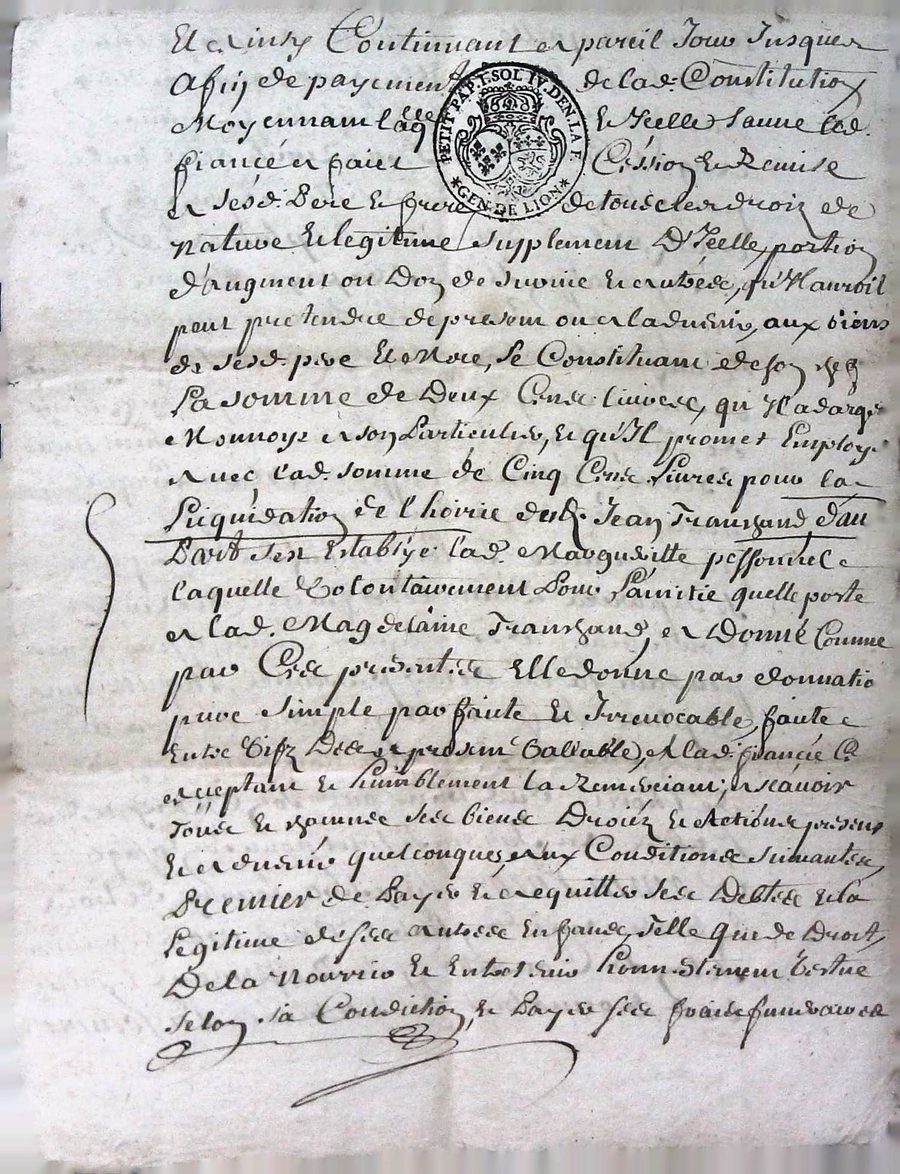 Et ainsy Continuant a pareil Jour Jusques
Afin de payement de lad. Constitution
Moyennant laq.lle Et Icelle sauve lad.
fiancé a fait Cession Et Remise
a sesd. Pere Et frere de tous ces droiz de
nature Et legitime supplement D'Icelle, portion
d'augment ou Don de survie Et autres, qu'Il auroit
peut pretendre de present ou a ladvenir, aux biens
de sesd. pere Et Mere, se Constituant de son chef
La somme de Deux Cens livres, qu'Il a dargt
Monnoye a son Particulier, Et qu'Il promet Employ.
Avec lad. somme de Cinq Cens Livres pour la
Liquidation de l'hoirie dud. Jean Transhand d'au
Part s'est Establye lad. Margueritte pessonnel
laquelle Volontairement Pour L'amitie quelle porte
a lad. Magdelaine Transhand, a Donné Comme
par Ces presentes Elle donne par donnatio
pure simple parfaite Et Irrevocable, faite
Entre Vifz Des a present Vallable, A lad. fiancée
acceptant Et humblement la Remerciant, a scavoir
Tous Et chacunes ses biens Droictz Et Actions presens
Et advenir quelconques, aux Conditions suivantes,
Premier de Payer Et acquitter ses Debtes Et la
Legitime de ses autres Enfans, Telle que de Droit,
De la Nourrir Et Entretenir honnestement Vestue
selon sa Condiction, Et Payer ses frais funeraires
PETIT PAP. 1. SOL IV. DEN. LA F.
GEN. DE LION